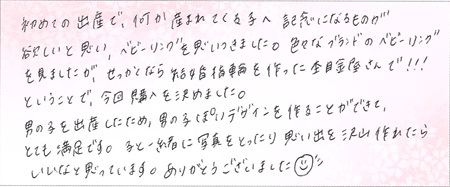 初めての出産で、何か産まれてくる子へ 記念になるものが
欲しいと思い、ベビーリングを思いつきました。色々なブランドのベビーリング
を見ましたが、せっかくなら結婚指輪を作った杢目金屋さんで!!!
ということで、今回購入を決めました。
男の子を出産したため、男の子っぽいデザインを作ることができて、
とても満足です。子と一緒に写真をとったり思い出を沢山作れたら
いいなと思っています。ありがとうございました